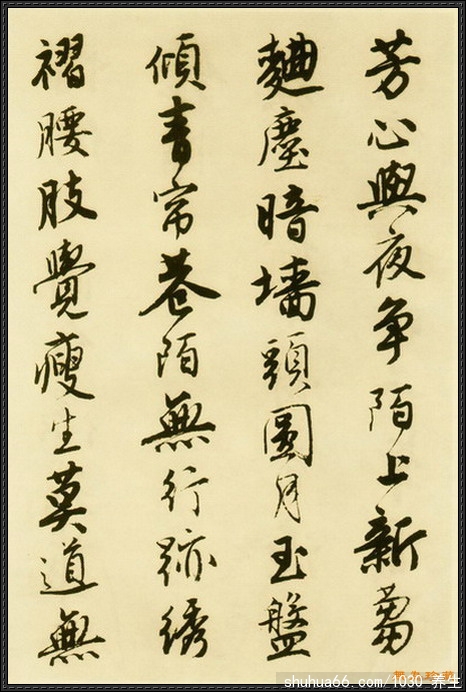 芳心與夜争陌上新蒭
麯塵暗墙頭圓月玉盤
傾青帘巷陌無行跡綉
褶腰肢覺瘦生莫道無
shuhua66.com/1030 养生